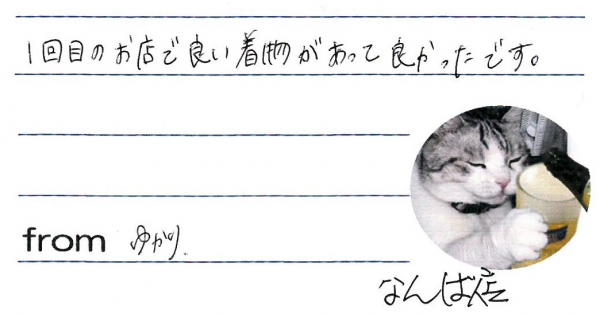 1回目のお店で良い着物があって良かったです。
from ゆかり.
なんば店